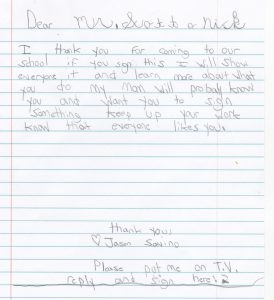 Dear Mr. Scott a nick
I thank you for coming to our
school if you sign this I will show
everyone it and learn more about what
you do my mom will probaly know
you and want you to sign
something keep up your work
know that everyone likes you.
thank you,
♡ Jason
Please put me on T.V.
reply and sign here!